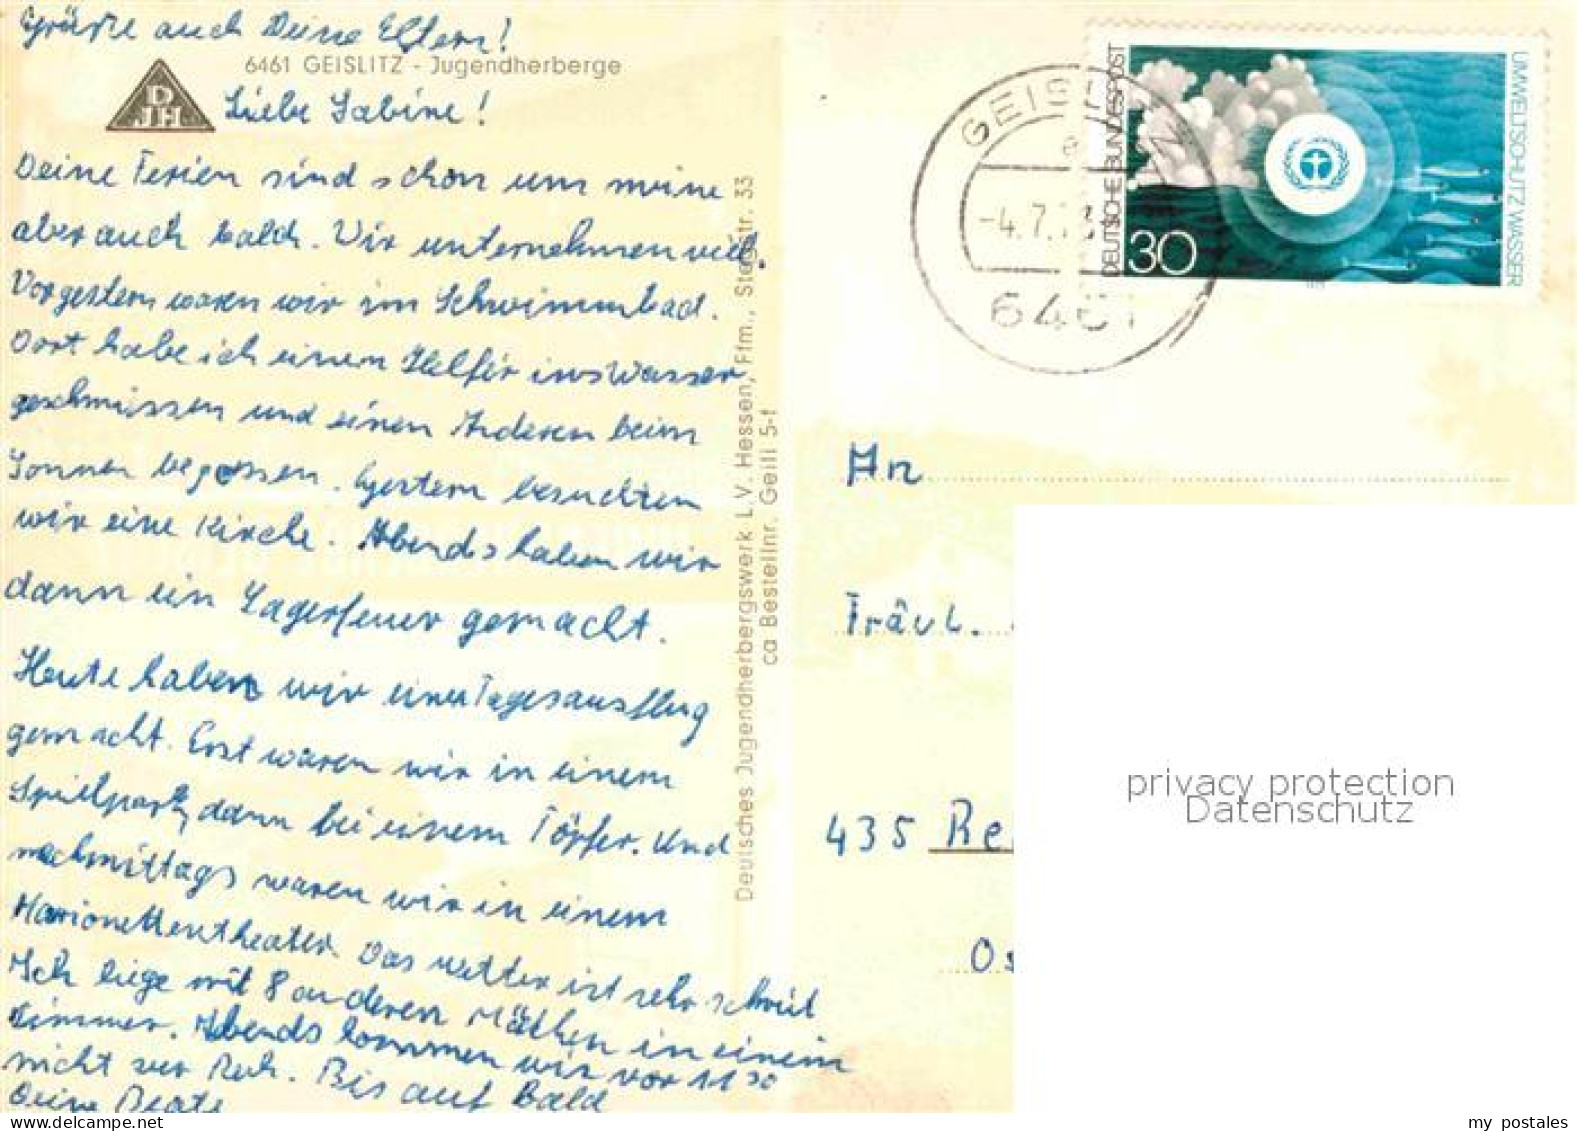 Grüße auch Deine Eltern!
6461 GEISLITZ - Jugendherberge
DJH
Liebe Sabine!
Deine Ferien sind schon um meine
aber auch bald. Wir unternehmen viel.
Vorgestern waren wir im Schwimmbad.
Dort habe ich einen Helfer ins Wasser
geschmissen und einen Anderen beim
Sonnen begossen. Gestern besuchten
wir eine Kirche. Abends haben wir
dann ein Lagerfeuer gemacht.
Heute haben wir einen Tagesausflug
gemacht. Erst waren wir in einem
Spielpark, dann bei einem Töpfer. Und
nachmittags waren wir in einem
Marionettentheater. Das wetter ist sehr
Ich liege mit 8 anderen Mädchen in einem
Zimmer. Abends kommen wir vor 11 30
nicht zur Ruh. Bis auf Bald
Deine Beate
Deutsches Jugendherbergswerk L.V. Hessen, Ffm., Stegstr. 33
ca Bestellnr. Geili 5-f
GEISLITZ
a
-4.7.73
6461
DEUTSCHE BUNDESPOST
30
UMWELTSCHUTZ WASSER
An
Fräul.
435 Re
Os
privacy protection
Datenschutz
my postales